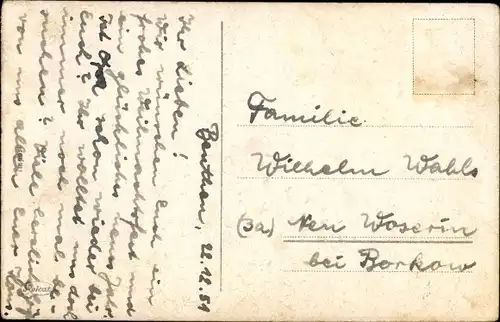 Benthen, 22.12.51
Ihr Lieben!
Wir wünschen Euch ein
frohes Weihnachtsfest und
ein glückliches neues Jahr.
Ist Opa schon wieder bei
Euch? Ihr wolltet uns doch
immer noch mal be-
suchen? Viele herzliche
von uns allen Euer
Familie
Wilhelm Wahls
(3a) Neu Woserin
bei Borkow